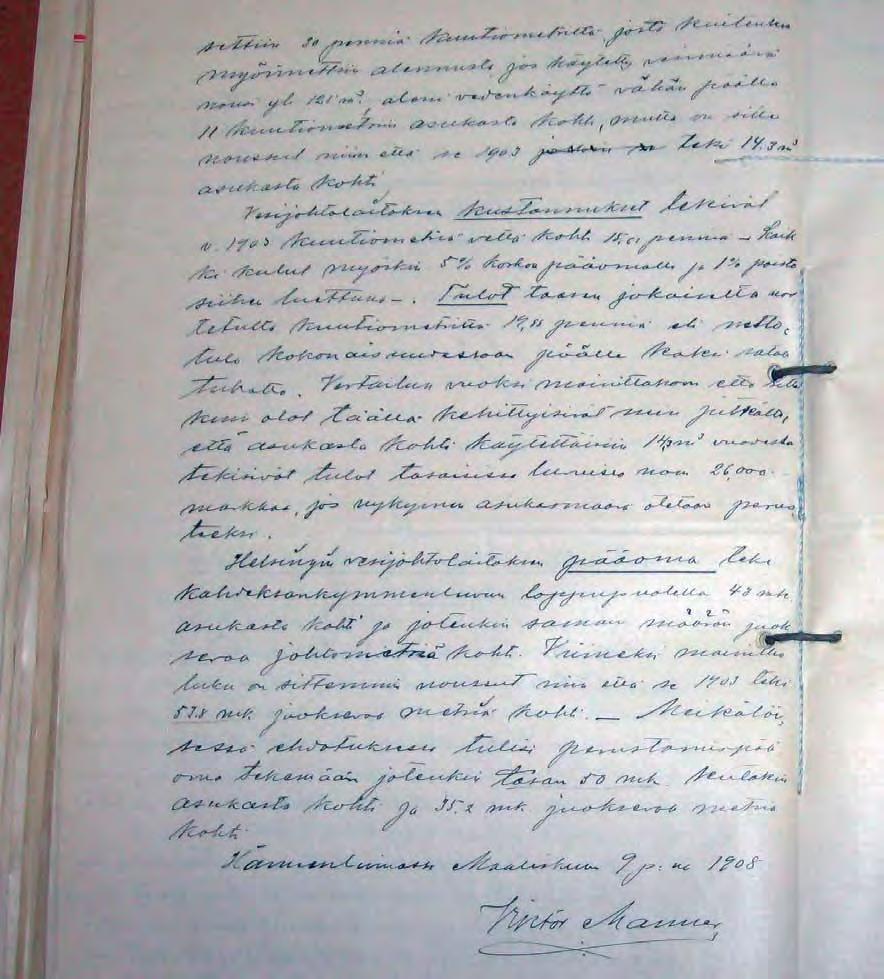 settiin 30 penniä kuutiometriltä, josta kuitenkin
myönnettiin alennusta jos käytetty vesimäärä
nousi yli 121 m³, aleni vedenkäyttö vähän päälle
11 kuutiometriin asukasta kohti, mutta on sitte
noussut niin että se 1903 teki 14.3 m³
asukasta kohti
Vesijohtolaitoksen kustannukset tekivät
v. 1903 kuutiometriä vettä kohti penniä — Kaik
ki kulut myöskin 5% korkoa pääomalle ja 1% poisto
siihen luettuna —. Tulot taasen jokaiselta
tetulta kuutiometriltä penniä eli netto,
tulo kokonaisuudessaan päälle kaksi sataa
tuhatta. Vertailun vuoksi mainittakoon että
kun olot täällä kehittyisivät niin pitkälle,
että asukasta kohti käytettäisiin 14,3 m³ vuodessa
tekisivät tulot tasaisissa luvuissa noin 26,000
markkaa, jos nykyinen asukasmäärä otetaan perus,
teeksi.
Helsingin vesijohtolaitoksen pääoma teki
kahdeksankymmenluvun loppupuolella 43 mk
asukasta kohti ja jotenkin saman määrän juok
sevaa johtometriä kohti. Viimeksi mainittu
luku on sittemmin noussut niin että se 1903 teki
53.8 mk juoksevaa metriä kohti. — Meikäläi,
sessä ehdotuksessa tulisi perustamispää
oma tekemään jotenkin tasan 50 mk kutakin
asukasta kohti ja 35.2 mk juoksevaa metriä
kohti.
Hämeenlinnassa Maaliskuun 9 p:nä 1908
Victor Manner